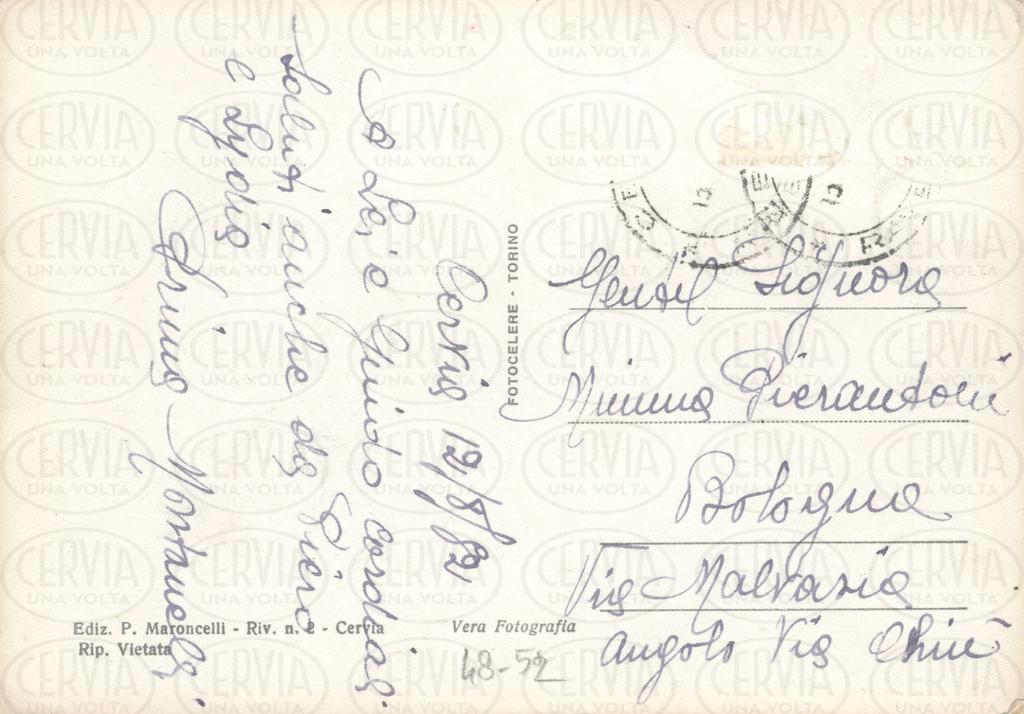 Cervia 12/8/52
A Lei e Guido cordiali
saluti anche da Piero
e Lydia
FOTOCELERE - TORINO
Gentil Signora
Mimma Pierantoni
Bologna
Via Malvasia
angolo Via Chiù
Ediz. P. Maroncelli - Riv. n. 2 - Cervia
Rip. Vietata
Vera Fotografia
48-52
CERVIA
UNA VOLTA